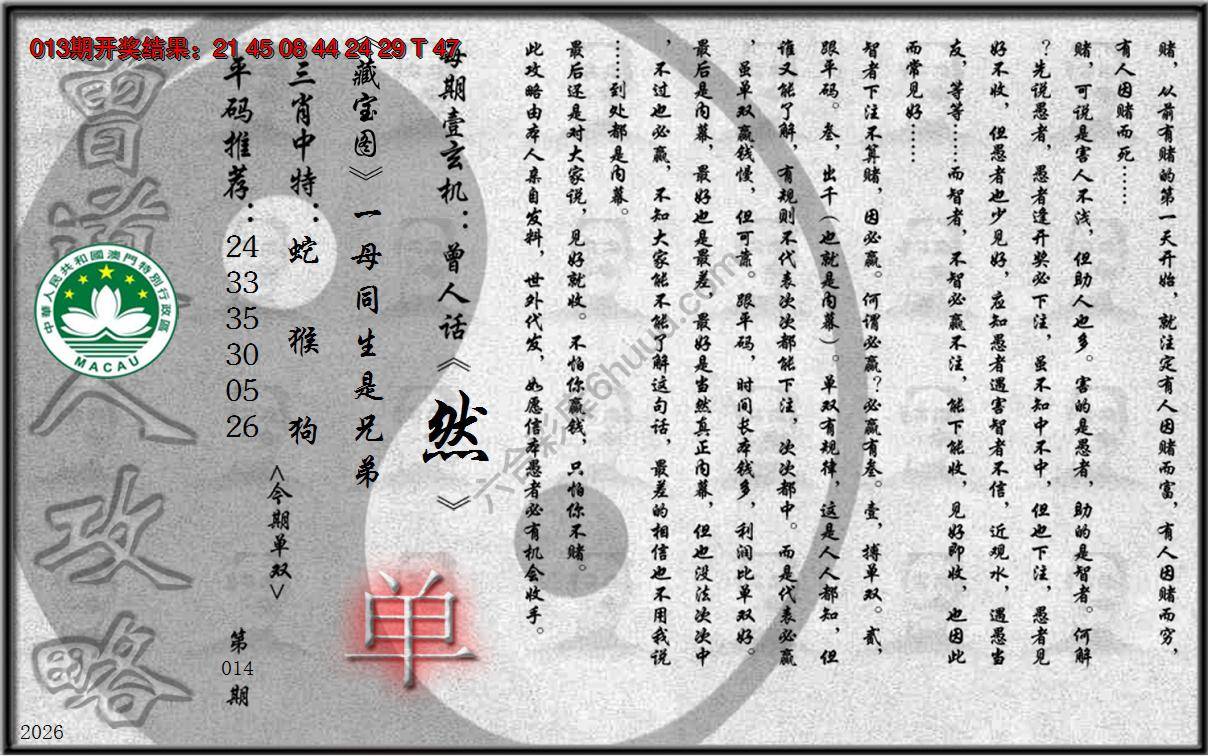 013期开奖结果：21 45 08 44 24 29 T 47
赌，从前有赌的第一天开始，就注定有人因赌而富，有人因赌而穷，
有人因赌而死……
赌，可说是害人不浅，但助人也多。害的是愚者，助的是智者。何解
？先说愚者，愚者逢开奖必下注，虽不知中不中，但也下注，愚者见
好不收，但愚者也少见好，应知愚者遇害智者不信，近观水，遇愚当
友，等等……而智者，不智必赢不注，能下能收，见好即收，也因此
而常见好……
智者下注不算赌，因必赢。何谓必赢？必赢有叁。壹，搏单双。贰，
跟平码。叁，出千（也就是内幕）。单双有规律，这是人人都知，但
谁又能了解，有规则不代表次次都能下注，次次都中。而是代表必赢
，虽单双赢钱慢，但可靠。跟平码，时间长本钱多，利润比单双好。
最后是内幕，最好也是最差，最好是当然真正内幕，但也没法次次中
，不过也必赢，不知大家能不能了解这句话，最差的相信也不用我说
……到处都是内幕。
最后还是对大家说，见好就收。不怕你赢钱，只怕你不赌。
此攻略由本人亲自发料，世外代发，如愿信本愚者必有机会收手。
每期壹玄机：曾人话《然》
《藏宝图》一母同生是兄弟
单
三肖中特：蛇 猴 狗
<今期单双>
平码推荐：24 33 35 30 05 26
第014期
曾道人攻略
中華人民共和國澳門特別行政區
MACAU
2026
六合彩库6huuu.com